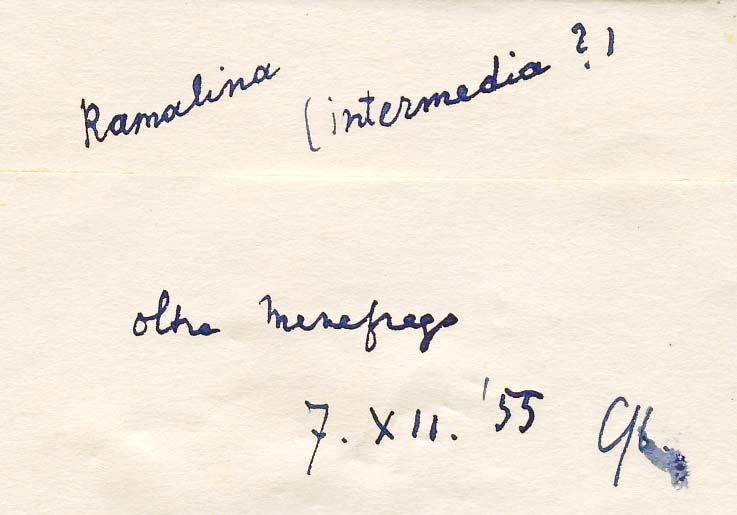 Ramalina (intermedia ?)
oltre Menefrego
7. XII. '55